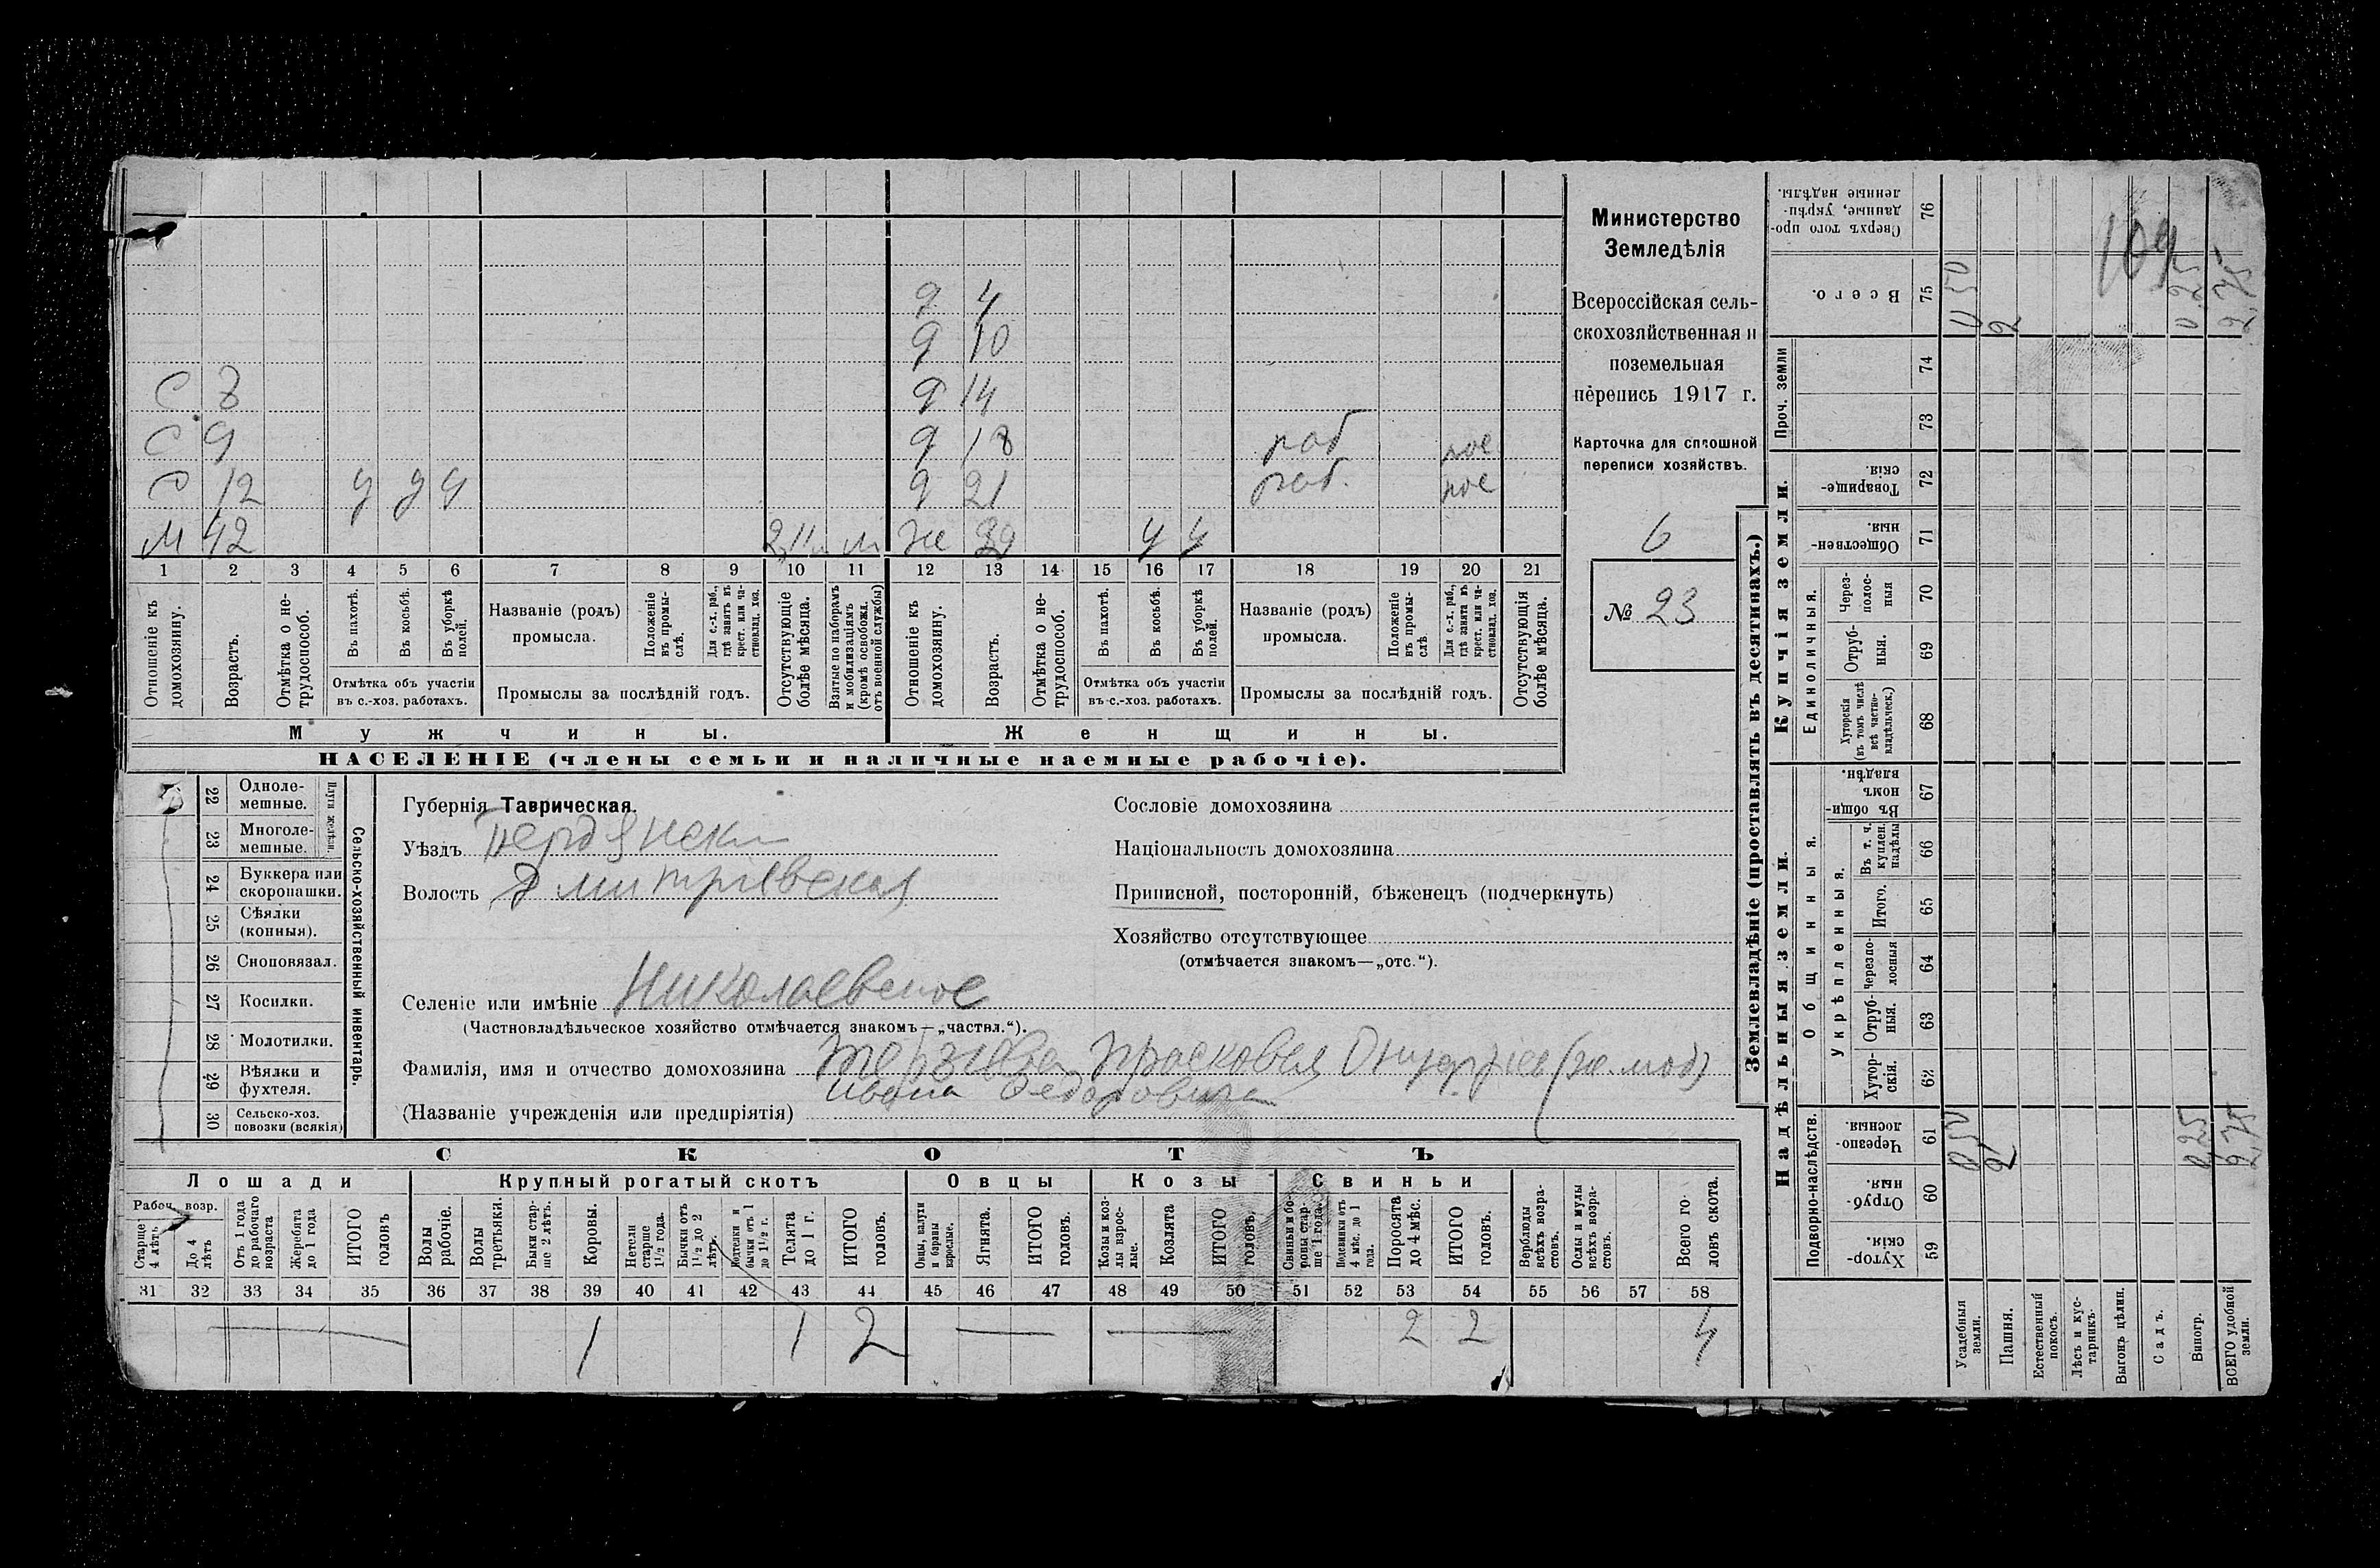 д 4
д 10
С 8 д 14
С 9 д 18 раб пос
С 12 у у у д 21 раб. пос
М 42 м же 39 у у
1 2 3 4 5 6 7 8 9 10 11 12 13 14 15 16 17 18 19 20 21
Отношеніе къ домохозяину.
Возрастъ.
Отмѣтка о не-трудоспособ.
Въ пахотѣ.
Въ косьбѣ.
Въ уборкѣ полей.
Отмѣтка объ участіи
въ с.-хоз. работахъ.
Названіе (родъ)
промысла.
Положеніе въ промы-слѣ.
Для с.-х. раб., гдѣ занятъ въ крест. или ча-стновлад. хоз.
Промыслы за послѣдній годъ.
Отсутствующіе болѣе мѣсяца.
Взятые по наборамъ и мобилизаціямъ (кромѣ освобожд. отъ военной службы)
Отношеніе къ домохозяину.
Возрастъ.
Отмѣтка о не-трудоспособ.
Въ пахотѣ.
Въ косьбѣ.
Въ уборкѣ полей.
Отмѣтка объ участіи
въ с.-хоз. работахъ.
Названіе (родъ)
промысла.
Положеніе въ промы-слѣ.
Для с.-х. раб., гдѣ занята въ крест. или ча-стновлад. хоз.
Промыслы за послѣдній годъ.
Отсутствующія болѣе мѣсяца.
Мужчины. Женщины.
НАСЕЛЕНІЕ (члены семьи и наличные наемные рабочіе).
Министерство
Земледѣлія
Всероссійская сель-
скохозяйственная и
поземельная
перепись 1917 г.
Карточка для сплошной
переписи хозяйствъ.
6
№ 23
Сельско-хозяйственный инвентарь.
Плуги желѣзн.
22 Одноле-
мешные.
23 Многоле-
мешные.
24 Буккера или
скоропашки.
25 Сѣялки
(конныя).
26 Сноповязал.
27 Косилки.
28 Молотилки.
29 Вѣялки и
фухтеля.
30 Сельско-хоз.
повозки (всякія)
Губернія Таврическая.
Уѣздъ Бердянски
Волость Дмитріевская
Селеніе или имѣніе Николаевское
(Частновладѣльческое хозяйство отмѣчается знакомъ—„частвл.“).
Фамилія, имя и отчество домохозяина Терзіева Прасковья
Ивана Федоровича
(Названіе учрежденія или предпріятія)
Сословіе домохозяина
Національность домохозяина
Приписной, посторонній, бѣженецъ (подчеркнуть)
Хозяйство отсутствующее
(отмѣчается знакомъ—„отс.“).
СКОТЪ
Лошади Крупный рогатый скотъ Овцы Козы Свиньи
Рабоч. возр.
Старше 4 лѣтъ
До 4 лѣтъ
Отъ 1 года до рабочаго возраста
Жеребята до 1 года
ИТОГО головъ
Волы рабочіе.
Волы третьяки.
Быки стар-ше 2 лѣтъ.
Коровы.
Нетели старше 1½ года.
Бычки отъ 1½ до 2 лѣтъ.
Подтелки и бычки отъ 1 до 1½ г.
Телята до 1 г.
ИТОГО головъ.
Овцы, валухи и бараны взрослые.
Ягнята.
ИТОГО головъ.
Козы и коз-лы взрос-лые.
Козлята
ИТОГО головъ.
Свиньи и бо-ровы стар-ше 1 года.
Подсвинки отъ 4 мѣс. до 1 года.
Поросята до 4 мѣс.
ИТОГО головъ.
Верблюды всѣхъ возра-стовъ.
Ослы и мулы всѣхъ возра-стовъ.
Всего го-ловъ скота.
31 32 33 34 35 36 37 38 39 40 41 42 43 44 45 46 47 48 49 50 51 52 53 54 55 56 57 58
1 1 2 2 2 4
Землевладѣніе (проставлять въ десятинахъ.)
Надѣльныя земли. Купчія земли. Проч. земли
Подворно-наслѣдств.
Общинныя.
Укрѣпленныя.
Единоличныя.
Хутор-скія. 59
Отруб-ныя. 60
Черезпо-лосныя. 61
Хутор-скія. 62
Отруб-ныя. 63
Черезпо-лосныя 64
Итого. 65
Въ т. ч. куплен. надѣлы 66
Въ общи-номъ владѣн. 67
Хуторскія (въ томъ числѣ всѣ частно-владѣльческ.) 68
Отруб-ныя. 69
Через-полос-ныя 70
Обществен-ныя. 71
Товарище-скія. 72
73
74
Всего. 75
Сверхъ того про-данные, укрѣп-ленные надѣлы. 76
Усадебныя земли. 0,50 0,50
Пашня. 2 2
Естественный покосъ.
Лѣсъ и кус-тарникъ.
Выгонъ цѣлин.
Садъ.
Виногр. 0,25 0,25
ВСЕГО удобной земли. 2,75 2,75
109